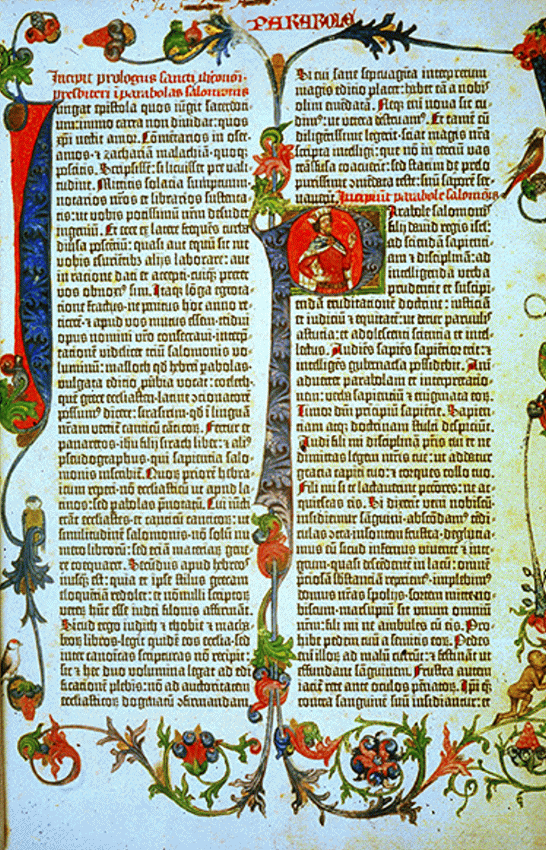 PARABOLE
Incipit prologus sancti iheronimi
presbiteri i parabolas salomonis
Iungat epistola quos iungit sacerdotium: immo carta non dividat: quos
xpi nectit amor. Cōmētarios in osee.
amos. ⁊ zachariā malachiā. quoq;
poscitis. Scripsissē: si licuisset pre valitudine. Mittitis solacia sumptuum.
notarios nr̄os et librarios sustentatis: ut vobis potissimū nr̄m desudet
ingeniū. Et ecce ex latere frequēs turba
diūsa poscētiū: quasi aut equū sit me
vobis esurientibz alijs laborare: aut
in ratione dati et accepti. cuiq̄ preter
vos obnoxi9 sim. Itaq; lōga egrotatione fractus. ne penitus hoc anno reticerē ⁊ apud vos mutus essem. tridui
opus nomini vr̄o consecraui. interpretationē videlicet triū salomonis voluminū: masloth qd hebrei pabolas.
vulgata editio pūbia vocat: coeleth.
quē grece ecclesiasten. latine ɔcionatorē
possum9 dicere: sirasirim. qd i linguā
nr̄am vertit̄ canticū cāticoꝝ. Fertur et
panaretos. ihu filij sirach liber: ⁊ ali9
pseudographus. qui sapientia salomonis inscribit̄. Quoꝝ priorē hebraicum reperi. nō ecclesiasticū ut apud latinos: sed pabolas p̄notatū. Cui iūcti
erāt ecclesiastes et canticū canticoꝝ: ut
similitudinē salomonis. nō solū numero libroꝝ: sed etiā materiaꝝ genere coequaret. Secūdus apud hebreos
nusq̄ est: quia et ipse stilus grecam
eloquētiā redolet: et nōnulli scriptoꝝ
veteꝝ hūc esse iudei filonis affirmāt.
Sicud ergo iudith ⁊ thobie ⁊ machabeoꝝ libros. legit quidē eos ecclesia. sed
inter canonicas scripturas nō recipit:
sic ⁊ hec duo volumina legat ad edificationē plebis: nō ad auctoritatem
ecclesiasticoꝝ dogmatū ɔfirmandam.
Si cui sane septuaginta interpretum
magis editio placet: habet eā a nobis
olim emēdatā. Neq; eni noua sic cudim9: ut vetera destruam9. Et tamē cū
diligētissime legerit. sciat magis nr̄a
scripta intelligi: que nō in terciū vas
trāsfusa coacuerīt: sed statim de prelo
purissime ɔmēdata teste: suū saporē seruauerīt.
Incipiunt parabole salomonis
Parabole salomonis
filij dauid regis isrl̄:
ad sciendā sapientiam ⁊ disciplinā: ad
intelligenda verba
prudentie et suscipiendā eruditationē doctrine: iusticiā
et iudiciū ⁊ equitatē: ut detur paruulis
astutia: et adolescenti scientia et intellectus. Audiēs sapiēs sapiētior erit: ⁊
intelligēs gubernacla possidebit. Animaduertet parabolam et interpretationem: verba sapientiū ⁊ enigmata eoꝝ.
Timor dn̄i principiū sapiētie. Sapientiam atq; doctrinam stulti despiciūt.
Audi fili mi disciplinā pr̄is tui et ne
dimittas legem mr̄is tue: ut addatur
gracia capiti tuo: ⁊ torques collo tuo.
Fili mi si te lactauerint pctōres: ne acquiescas eis. Si dixerīt veni nobiscū.
insidiemur sāguini. abscōdam9 tendiculas ɔtra insontem frustra. deglutiamus eū sicud infernus viuentē ⁊ integrum. quasi descēdentē in lacū: omnē
p̄ciosā sb̄stanciā reperiem9. implebim9
domus nr̄as spolijs. sortem mitte nobiscum. marsupiū sit unum omnium
nr̄m: fili mi ne ambules cū eis. Prohibe pedem tuū a semitis eoꝝ. Pedes
eni illoꝝ ad malū currūt: ⁊ festināt ut
effundant sanguinem. Frustra autem
iacit̄ rete ante oculos pēnatoꝝ. Ipsi q̄;
contra sanguinē suū insidiantur: et